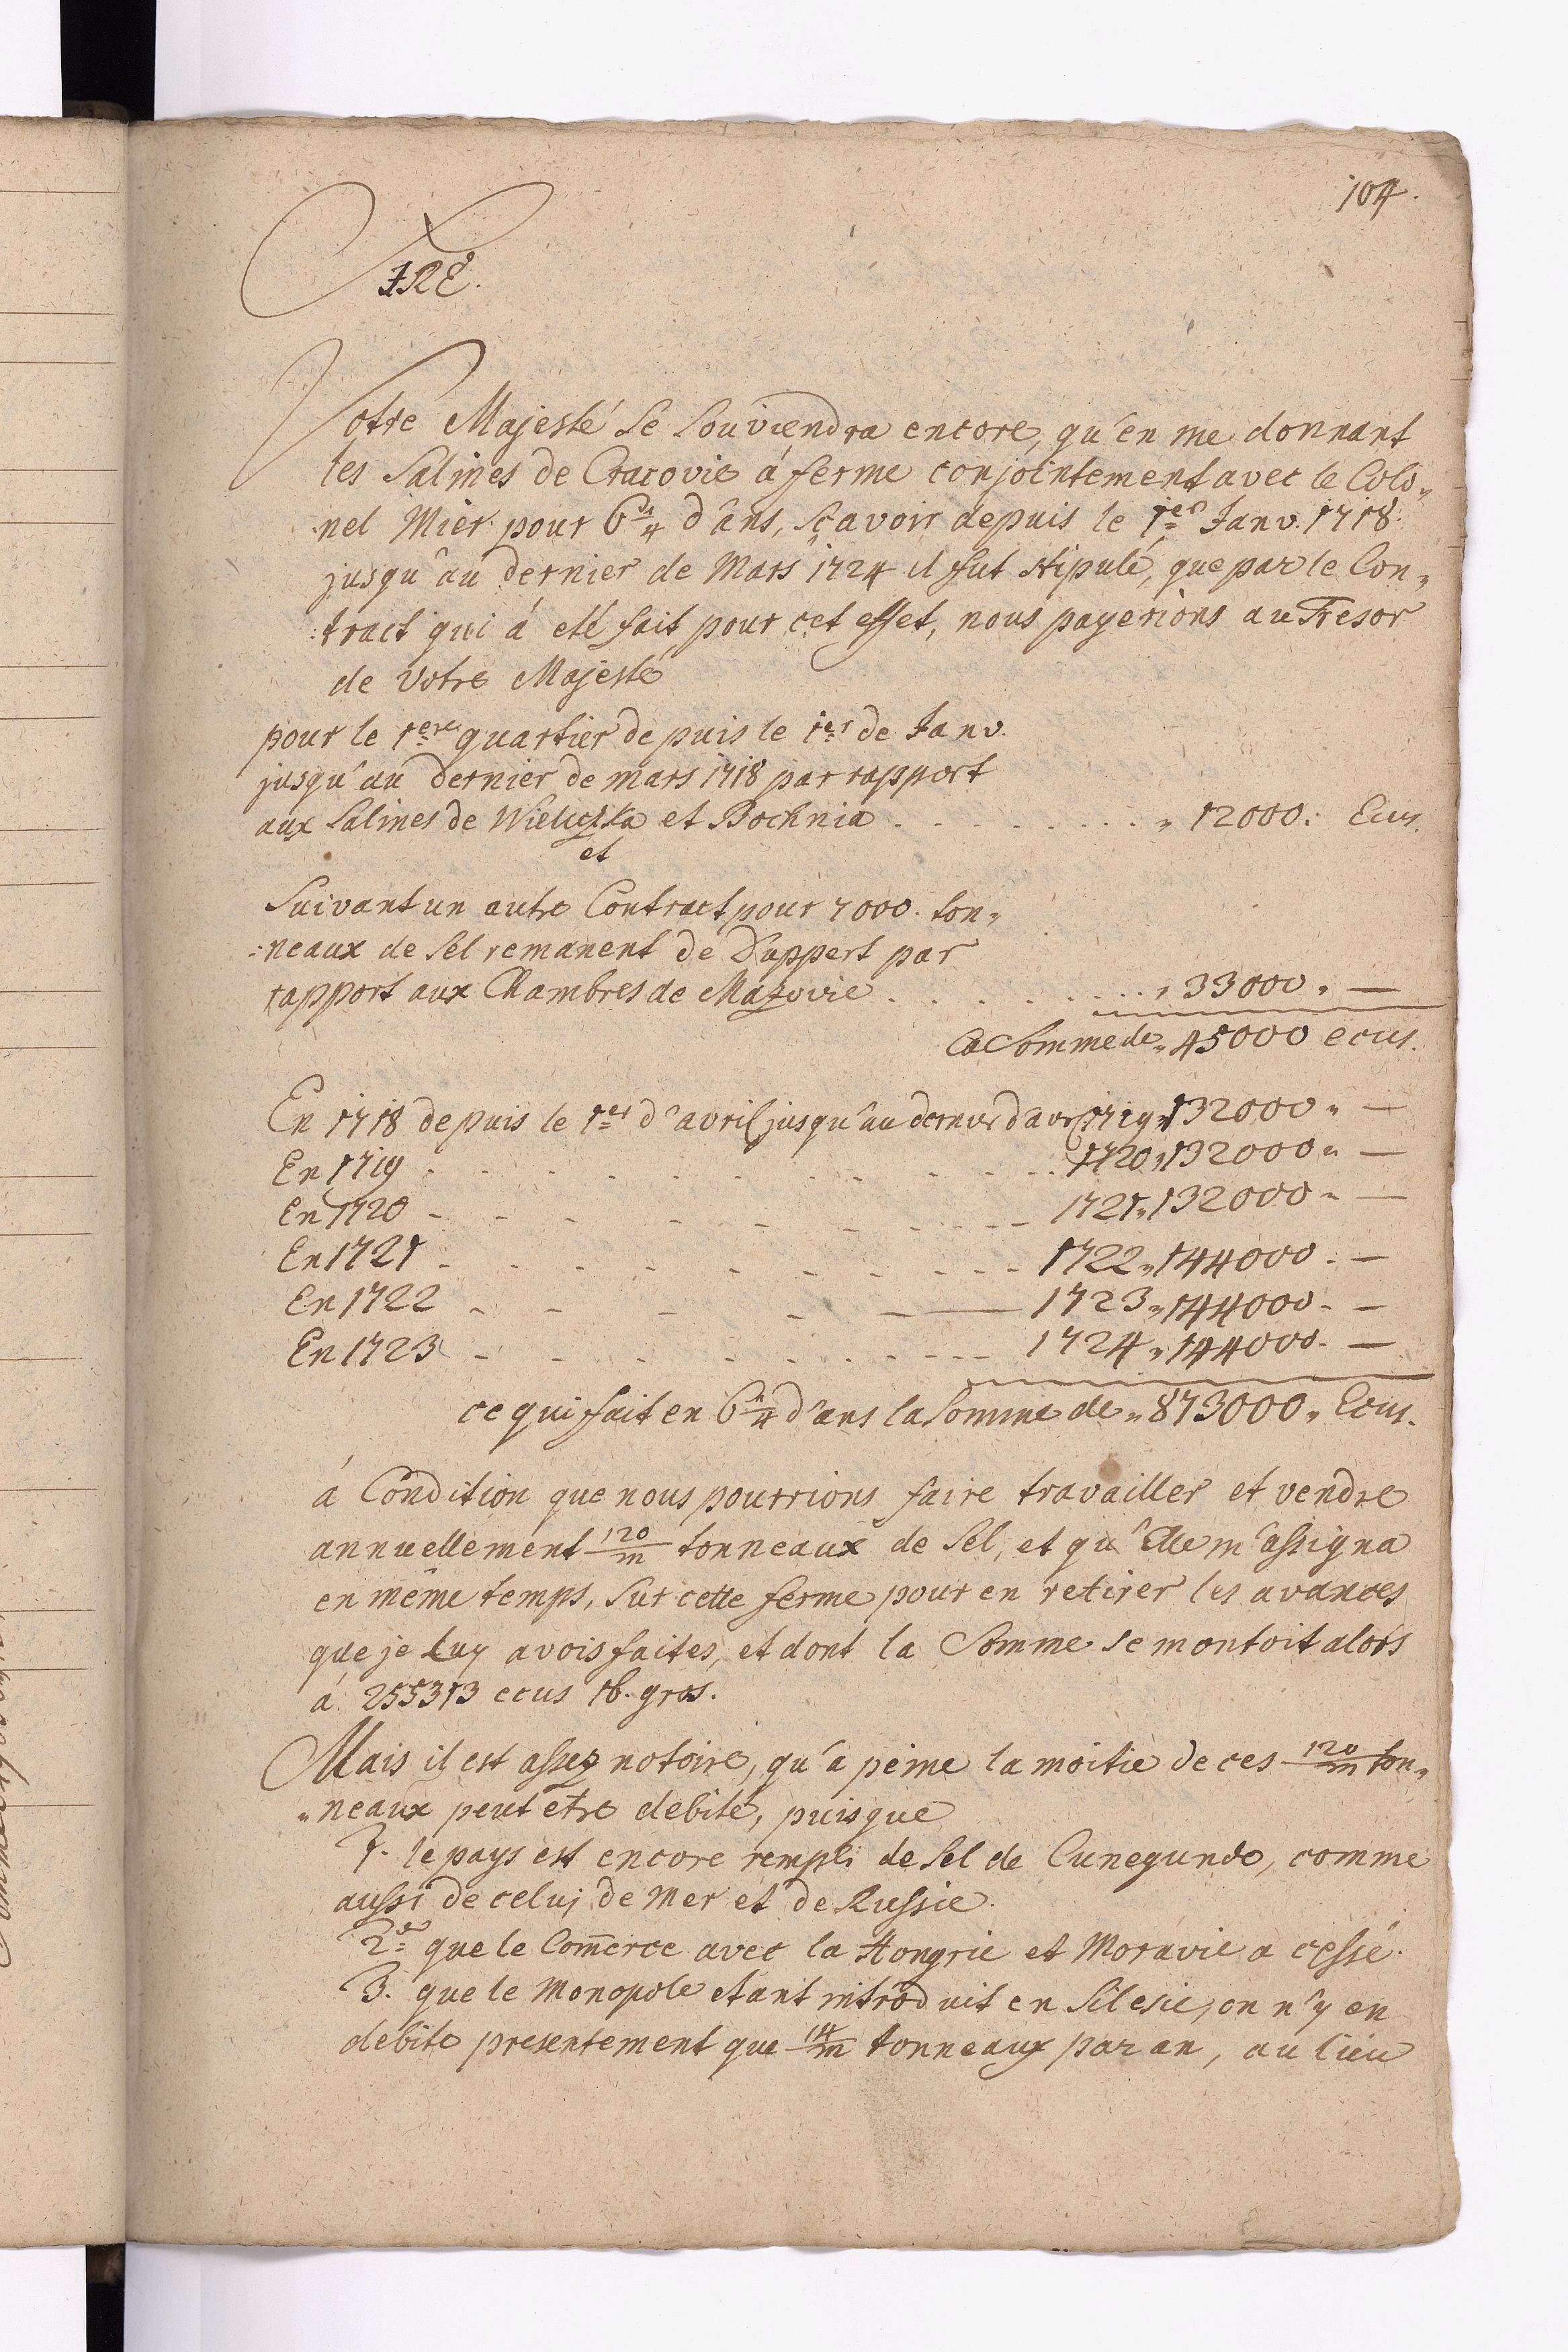 104.
SIRE.
Votre Majesté se souviendra encore, qu'en me donnant
les Salines de Cracovie á ferme conjointement avec le Colo„
nel Mier pour 6 1/4 d'ans, sçavoir depuis le 1er Janv. 1718.
jusqu'au dernier de Mars 1724 il fut stipulé, que par le Con„
:tract qui á eté fait pour cet effet, nous payerions au Tresor
de Votre Majesté
pour le 1ere quartier depuis le 1er de Janv.
jusqu'au dernier de mars 1718 par rapport
aux Salines de Wieliczka et Bochnia . . . . . . . . . „ 12000: Ecus.
et
Suivant un autre Contract pour 7000. ton„
:neaux de Sel remanent de Duppert par
rapport aux Chambres de Mazovie . . . . . . . . „ 33000 „ —
la Somme de „ 45000 ecus.
En 1718 depuis le 1er d'avril jusqu'au dernier d'avr. 1719 „ 132000 „ —
En 1719 . . . . . . . . . . . 1720 „ 132000 „ —
En 1720 - - - - - - - - - 1721 „ 132000 „ —
En 1721 - - - - - - - - - 1722 „ 144000 . —
En 1722 - - - - - — 1723 „ 144000 - —
En 1723 - - - - - - - - - 1724 „ 144000 - —
ce qui fait en 6 1/4 d'ans la Somme de „ 873000 „ Ecus.
á Condition que nous pourrions faire travailler et vendre
annuellement 120/m tonneaux de Sel, et qu'Elle m'assigna
en même temps, sur cette ferme pour en retirer les avances
que je Luy avois faites, et dont la Somme se montoit alors
á 255313 ecus 16. gros.
Mais il est assez notoire, qu'a peine la moitie de ces 120/m ton„
„neaux peut etre debité, puisque
1. le pays est encore rempli de Sel de Cunegunde, comme
aussi de celuj de Mer et de Russie.
2do que le Com̄erce avec la Hongrie et Moravie a cessé.
3. que le Monopole etant introduit en Silesie, on n'y en
debite presentement que 14/m tonneaux par an, au lieu